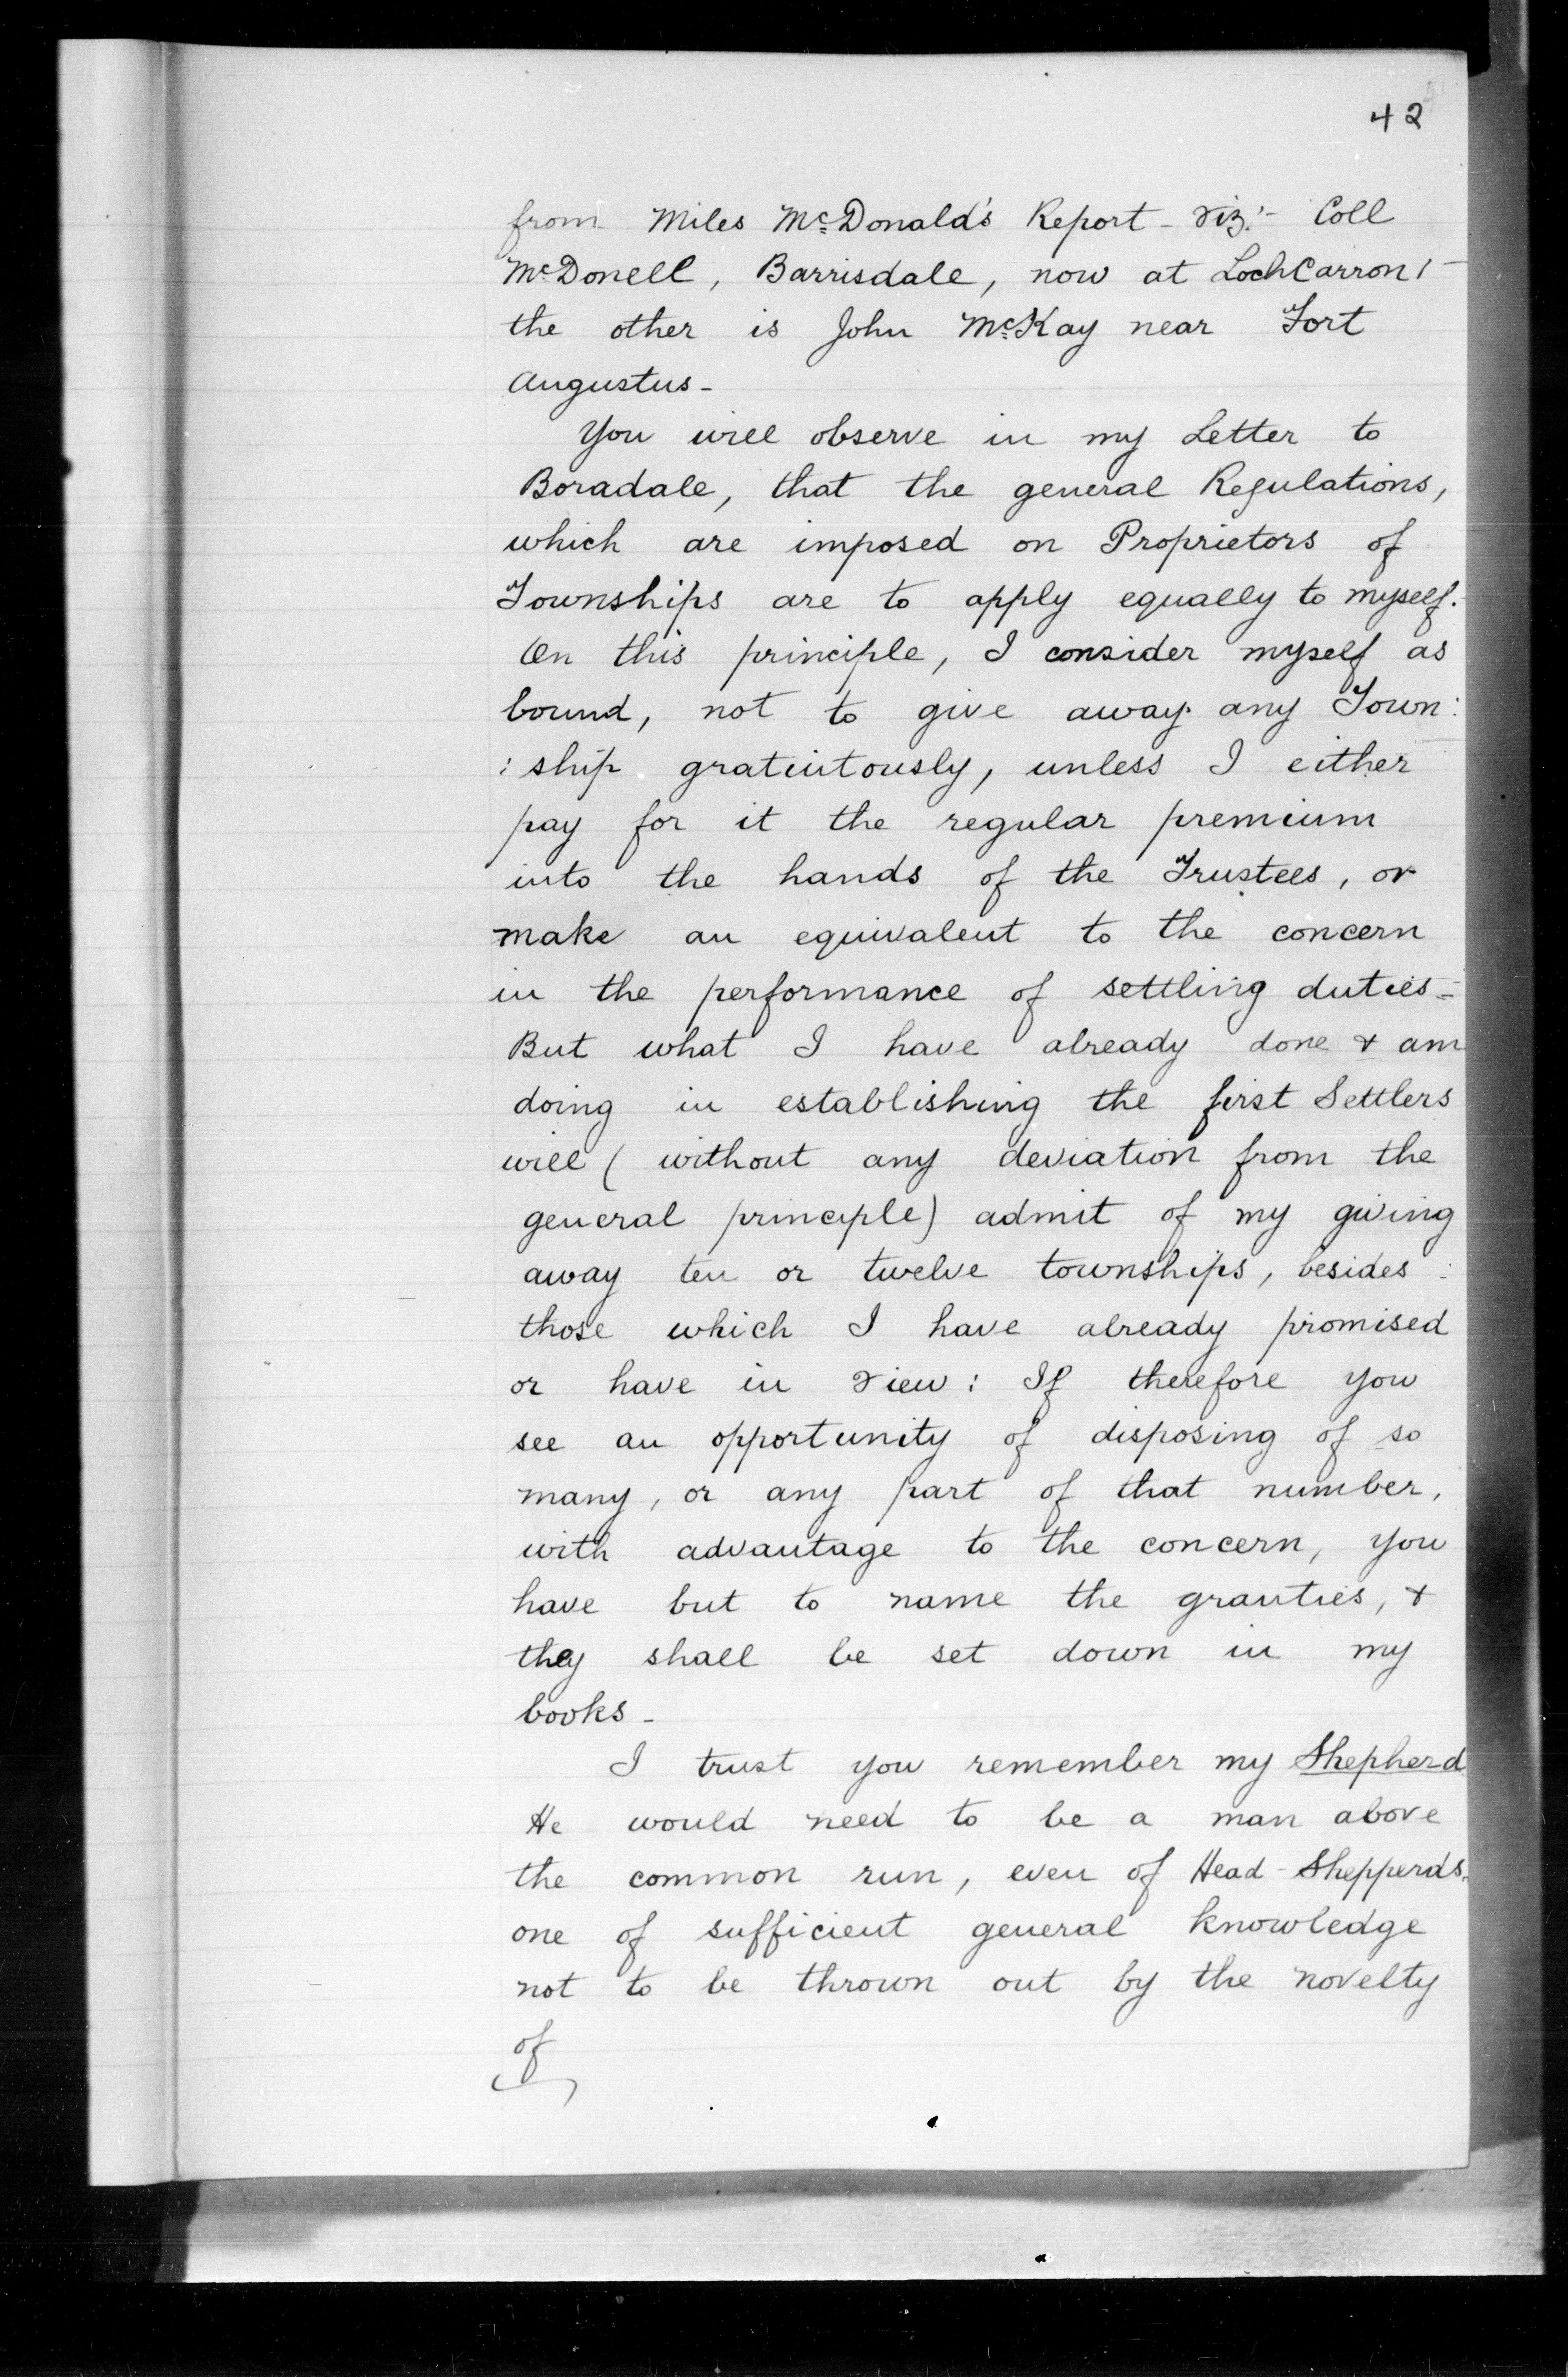 42
from Miles McDonald's Report - viz:- Coll
McDonell, Barrisdale, now at LochCarron! -
the other is John McKay near Fort
Augustus -
You will observe in my Letter to
Boradale, that the general Regulations,
which are imposed on Proprietors of
Townships are to apply equally to myself. -
On this principle, I consider myself as
bound, not to give away any Town:
:ship gratuitously, unless I either
pay for it the regular premium
into the hands of the Trustees, or
make an equivalent to the concern
in the performance of settling duties -
But what I have already done & am
doing in establishing the first Settlers
will (without any deviation from the
general principle) admit of my giving
away ten or twelve townships, besides
those which I have already promised
or have in view: If therefore you
see an opportunity of disposing of so
many, or any part of that number,
with advantage to the concern, you
have but to name the granties, &
they shall be set down in my
books -
I trust you remember my Shepherd
He would need to be a man above
the common run, even of Head-Shepperds.
one of sufficient general knowledge
not to be thrown out by the novelty
of